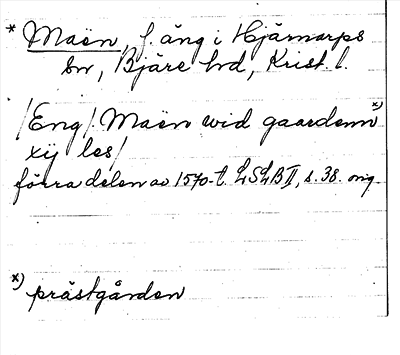 * Maen, f. äng i Hjärnarps
sn, Bjäre hd, Krist. l.
/Eng/ Maen wid gaardenn x)
xij les/
förra delen av 1570-t. LSLB II, s. 38. orig.
x) prästgården